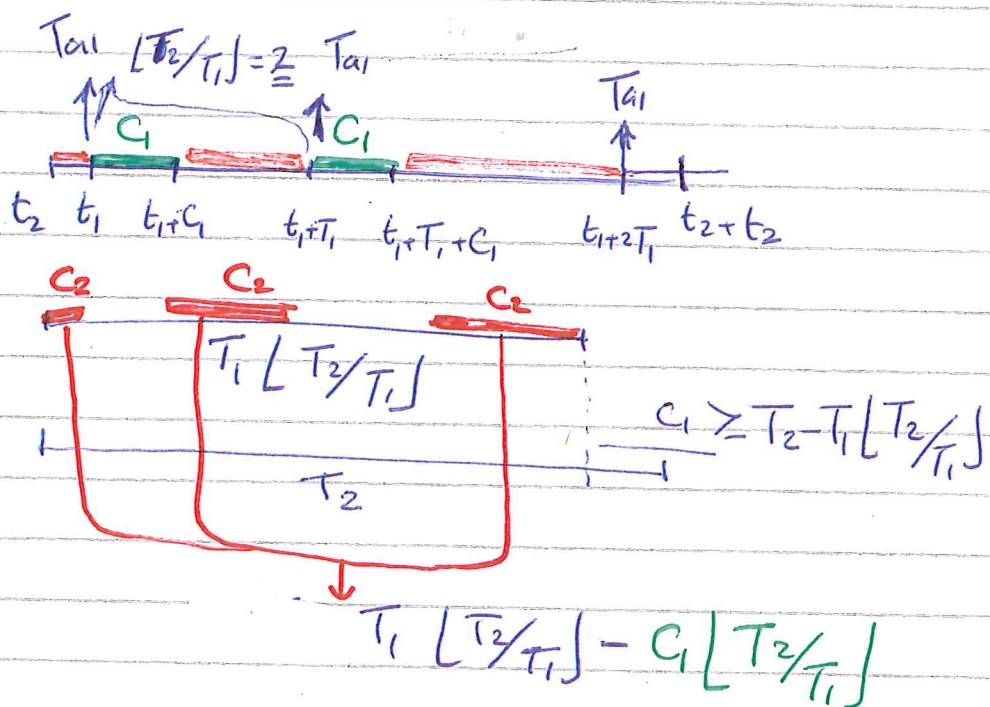 Ta1 ⌊T2/T1⌋=2 Ta1
Ta1
C1 C1
t2 t1 t1+C1 t1+T1 t1+T1+C1 t1+2T1 t2+t2
C2 C2 C2
T1 ⌊T2/T1⌋
C1 ≥ T2-T1⌊T2/T1⌋
T2
T1 ⌊T2/T1⌋ - C1 ⌊T2/T1⌋